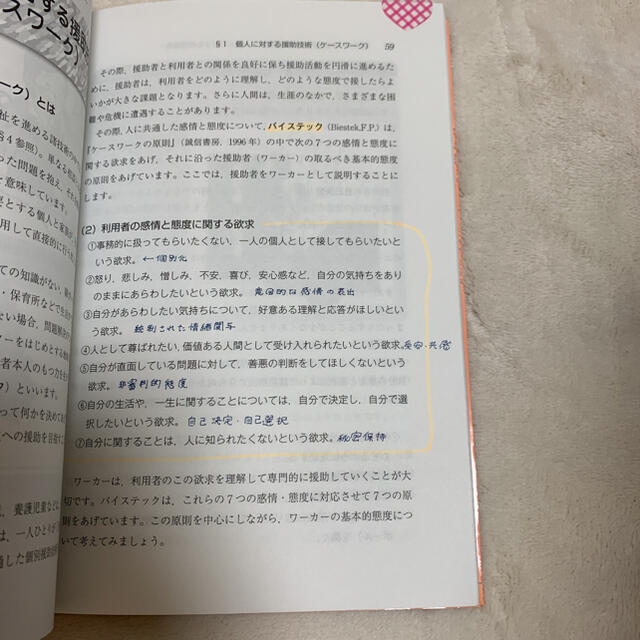 §1 個人に対する援助技術（ケースワーク） 59
その際、援助者と利用者との関係を良好に保ち援助活動を円滑に進めるため
に、援助者は、利用者をどのように理解し、どのような態度で接したらよ
いかが大きな課題となります。さらに人間は、生涯のなかで、さまざまな困
難や危機に遭遇することがあります。
その際、人に共通した感情と態度について、バイステック（Biestek,F.P.）は、
『ケースワークの原則』（誠信書房、1996年）の中で次の7つの感情と態度に
関する欲求をあげ、それに沿った援助者（ワーカー）の取るべき基本的態度
の原則をあげています。ここでは、援助者をワーカーとして説明することに
します。
(2) 利用者の感情と態度に関する欲求
①事務的に扱ってもらいたくない、一人の個人として接してもらいたいと
いう欲求。←個別化
②怒り、悲しみ、憎しみ、不安、喜び、安心感など、自分の気持ちをあり
のままにあらわしたいという欲求。意図的な感情の表出
③自分があらわしたい気持ちについて、好意ある理解と応答がほしいとい
う欲求。統制された情緒関与
④人として尊ばれたい、価値ある人間として受け入れられたいという欲求。受容・共感
⑤自分が直面している問題に対して、善悪の判断をしてほしくないという
欲求。非審判的態度
⑥自分の生活や、一生に関することについては、自分で決定し、自分で選
択したいという欲求。自己決定・自己選択
⑦自分に関することは、人に知られたくないという欲求。秘密保持
ワーカーは、利用者のこの欲求を理解して専門的に援助していくことが大
切です。バイステックは、これらの7つの感情・態度に対応させて7つの原
則をあげています。この原則を中心にしながら、ワーカーの基本的態度につ
いて考えてみましょう。
する援助
スワーク）
ーク）とは
祉を進める諸技術の中
§4参照）。単なる相談
った問題を抱え、それ
意味しています。
要とする個人と家族が
用して直接的に行う
ての知識がない、
・保育所などで生
ない場合、問題解決
ーカーをはじめとする
者本人のもつ力を
ク）といいます。
って何かを決めて
への援助を目指
養護児童など
は、一人ひとりが
通した個別援助